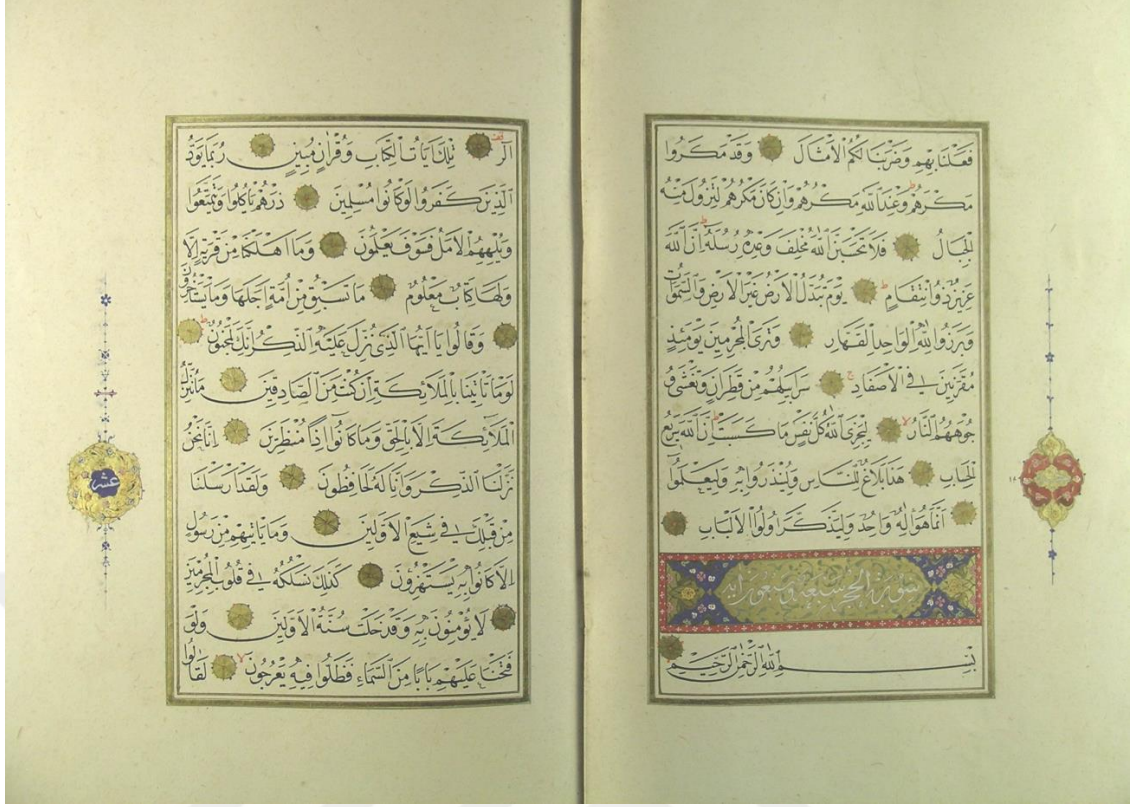 فَعَلْنَا بِهِمْ وَضَرَبْنَا لَكُمُ الْاَمْثَالَ وَقَدْ مَكَرُوا
مَكْرَهُمْ وَعِنْدَ اللّٰهِ مَكْرُهُمْ وَاِنْ كَانَ مَكْرُهُمْ لِتَزُولَ مِنْهُ
الْجِبَالُ فَلَا تَحْسَبَنَّ اللّٰهَ مُخْلِفَ وَعْدِهِ رُسُلَهُ اِنَّ اللّٰهَ
عَزِيزٌ ذُو انْتِقَامٍ يَوْمَ تُبَدَّلُ الْاَرْضُ غَيْرَ الْاَرْضِ وَالسَّمٰوَاتُ
وَبَرَزُوا لِلّٰهِ الْوَاحِدِ الْقَهَّارِ وَتَرَى الْمُجْرِمِينَ يَوْمَئِذٍ
مُقَرَّنِينَ فِي الْاَصْفَادِ سَرَابِيلُهُمْ مِنْ قَطِرَانٍ وَتَغْشٰى وُ
جُوهَهُمُ النَّارُ لِيَجْزِيَ اللّٰهُ كُلَّ نَفْسٍ مَا كَسَبَتْ اِنَّ اللّٰهَ سَرِيعُ
الْحِسَابِ هٰذَا بَلَاغٌ لِلنَّاسِ وَلِيُنْذَرُوا بِهِ وَلِيَعْلَمُوا
اَنَّمَا هُوَ اِلٰهٌ وَاحِدٌ وَلِيَذَّكَّرَ اُولُوا الْاَلْبَابِ
سورة الحجر تسعة وتسعون اية
بِسْمِ اللّٰهِ الرَّحْمٰنِ الرَّحِيمِ
الٓرٰ تِلْكَ اٰيَاتُ الْكِتَابِ وَقُرْاٰنٍ مُبِينٍ رُبَمَا يَوَدُّ
الَّذِينَ كَفَرُوا لَوْ كَانُوا مُسْلِمِينَ ذَرْهُمْ يَاْكُلُوا وَيَتَمَتَّعُوا
وَيُلْهِهِمُ الْاَمَلُ فَسَوْفَ يَعْلَمُونَ وَمَا اَهْلَكْنَا مِنْ قَرْيَةٍ اِلَّا
وَلَهَا كِتَابٌ مَعْلُومٌ مَا تَسْبِقُ مِنْ اُمَّةٍ اَجَلَهَا وَمَا يَسْتَاْخِرُونَ
وَقَالُوا يَا اَيُّهَا الَّذِي نُزِّلَ عَلَيْهِ الذِّكْرُ اِنَّكَ لَمَجْنُونٌ
لَوْمَا تَاْتِينَا بِالْمَلَائِكَةِ اِنْ كُنْتَ مِنَ الصَّادِقِينَ مَا نُنَزِّلُ
الْمَلَائِكَةَ اِلَّا بِالْحَقِّ وَمَا كَانُوا اِذًا مُنْظَرِينَ اِنَّا نَحْنُ
نَزَّلْنَا الذِّكْرَ وَاِنَّا لَهُ لَحَافِظُونَ وَلَقَدْ اَرْسَلْنَا
مِنْ قَبْلِكَ فِي شِيَعِ الْاَوَّلِينَ وَمَا يَاْتِيهِمْ مِنْ رَسُولٍ
اِلَّا كَانُوا بِهِ يَسْتَهْزِؤُنَ كَذٰلِكَ نَسْلُكُهُ فِي قُلُوبِ الْمُجْرِمِينَ
لَا يُؤْمِنُونَ بِهِ وَقَدْ خَلَتْ سُنَّةُ الْاَوَّلِينَ وَلَوْ
فَتَحْنَا عَلَيْهِمْ بَابًا مِنَ السَّمَاءِ فَظَلُّوا فِيهِ يَعْرُجُونَ لَقَالُوا
عشر